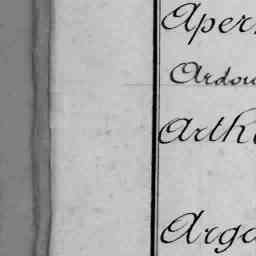 Aper
Ardou
Arth
Arga